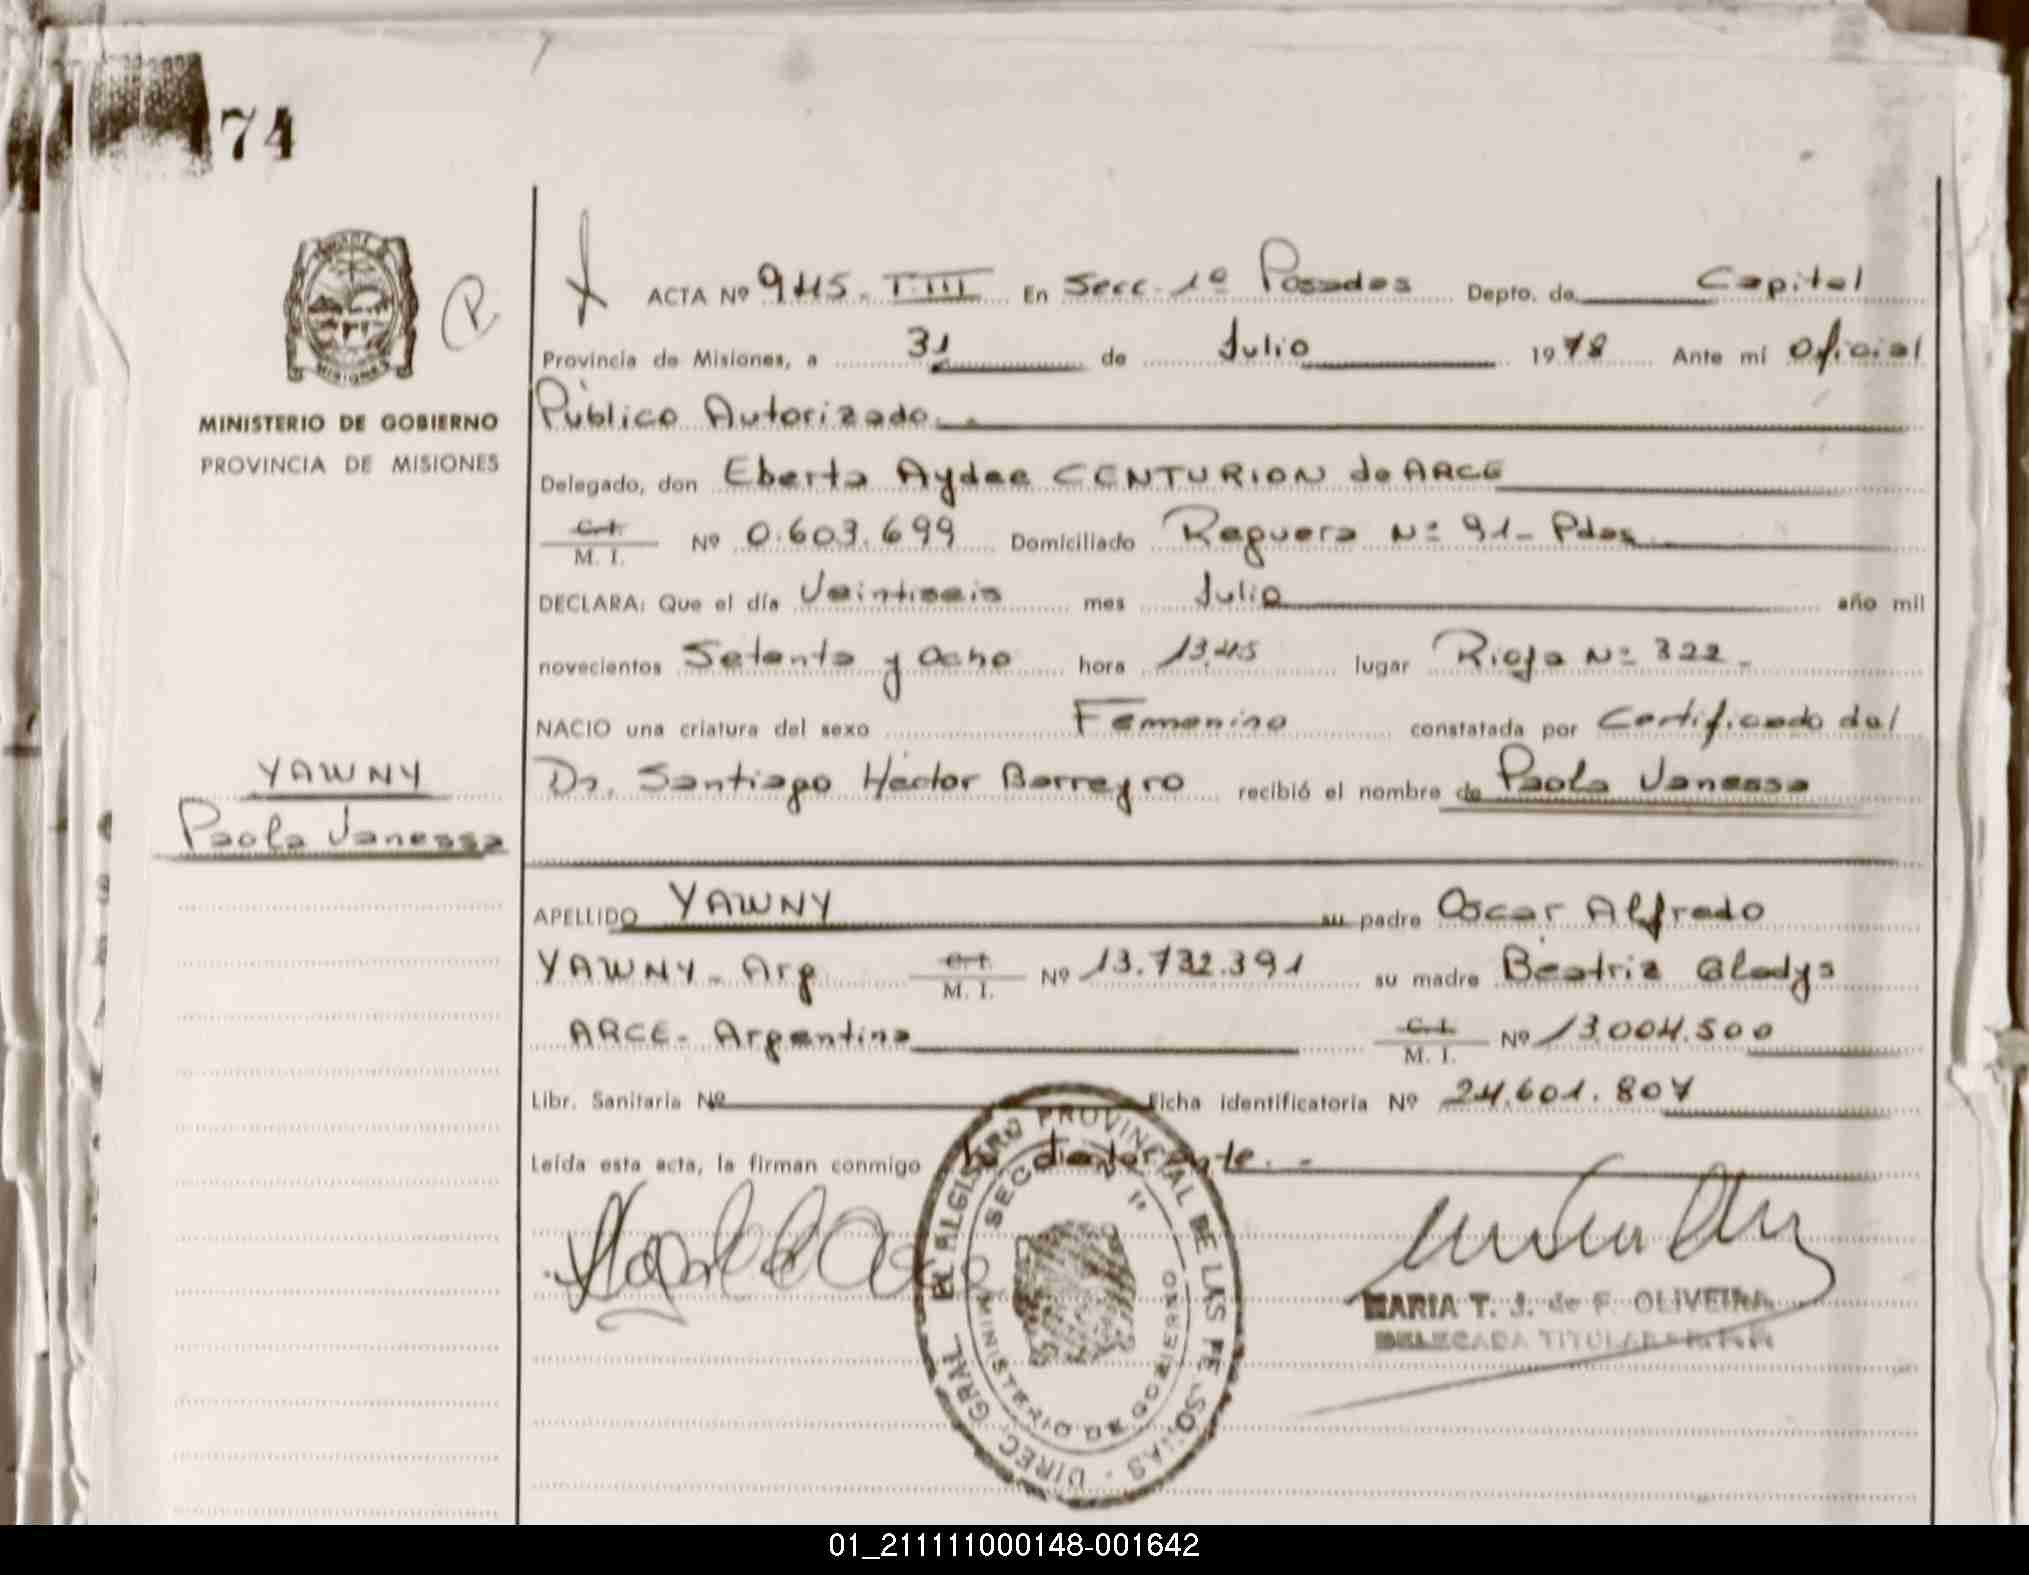 74
ACTA Nº 945. T.III En Secc. 1º Posadas Depto. de Capital
Provincia de Misiones, a 31 de Julio 1978 Ante mí Oficial
Público Autorizado.-
MINISTERIO DE GOBIERNO
PROVINCIA DE MISIONES
Delegado, don Eberta Aydee CENTURION de ARCE
C.I.
M. I. Nº 0.603.699 Domiciliado Reguera Nº 91- Pdas
DECLARA: Que el día Veintiseis mes Julio año mil
novecientos Setenta y Ocho hora 13.45 lugar Rioja Nº 322-
NACIO una criatura del sexo Femenino constatada por Certificado del
Dr. Santiago Héctor Barreyro recibió el nombre de Paola Vanessa
YAWNY
Paola Vanessa
APELLIDO YAWNY su padre Oscar Alfredo
YAWNY- Arg C.I.
M. I. Nº 13.732.391 su madre Beatriz Gladys
ARCE- Argentina C.I.
M. I. Nº 13.004.500
Libr. Sanitaria Nº Ficha identificatoria Nº 24.601.807
Leída esta acta, la firman conmigo la declarante.-
DIREC. GRAL. DEL REGISTRO PROVINCIAL DE LAS PERSONAS
SECCION 1ª
MINISTERIO DE GOBIERNO
MARIA T. J. de F. OLIVEIRA
DELEGADA TITULAR
01_211111000148-001642